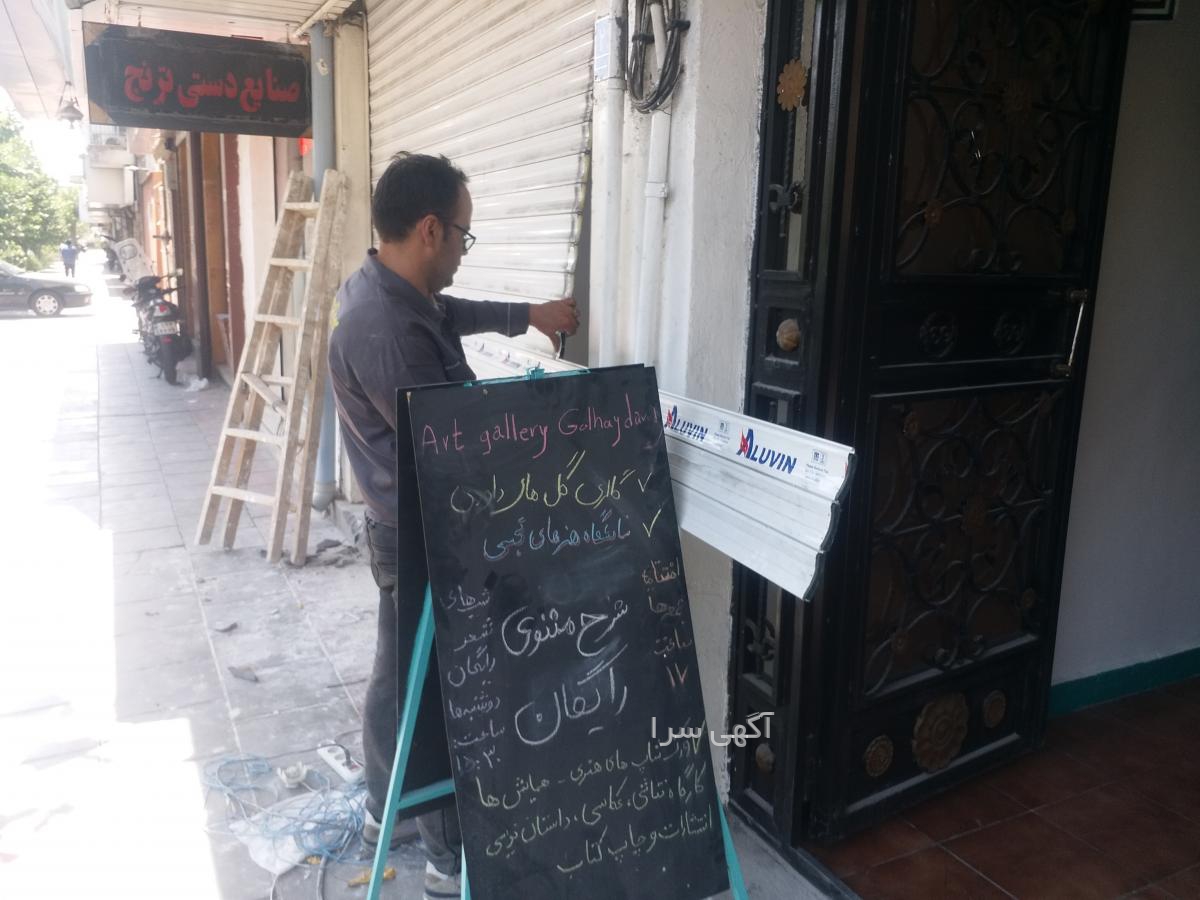 صنایع دستی ترنج
ALUVIN
ALUVIN
Art gallery Golhay dav
✓ گالری گل های داوودی
✓ نمایشگاه هنرهای تجسمی
افتتاحیه
جمعه‌ها
ساعت
۱۷
شرح مثنوی
رایگان
شب‌های
شعر
رایگان
دوشنبه‌ها
ساعت:
۱۵:۳۰
✓ ورکشاپ های هنری - همایش ها
کارگاه نقاشی، عکاسی، داستان نویسی
انتشارات و چاپ کتاب
آگهی سرا